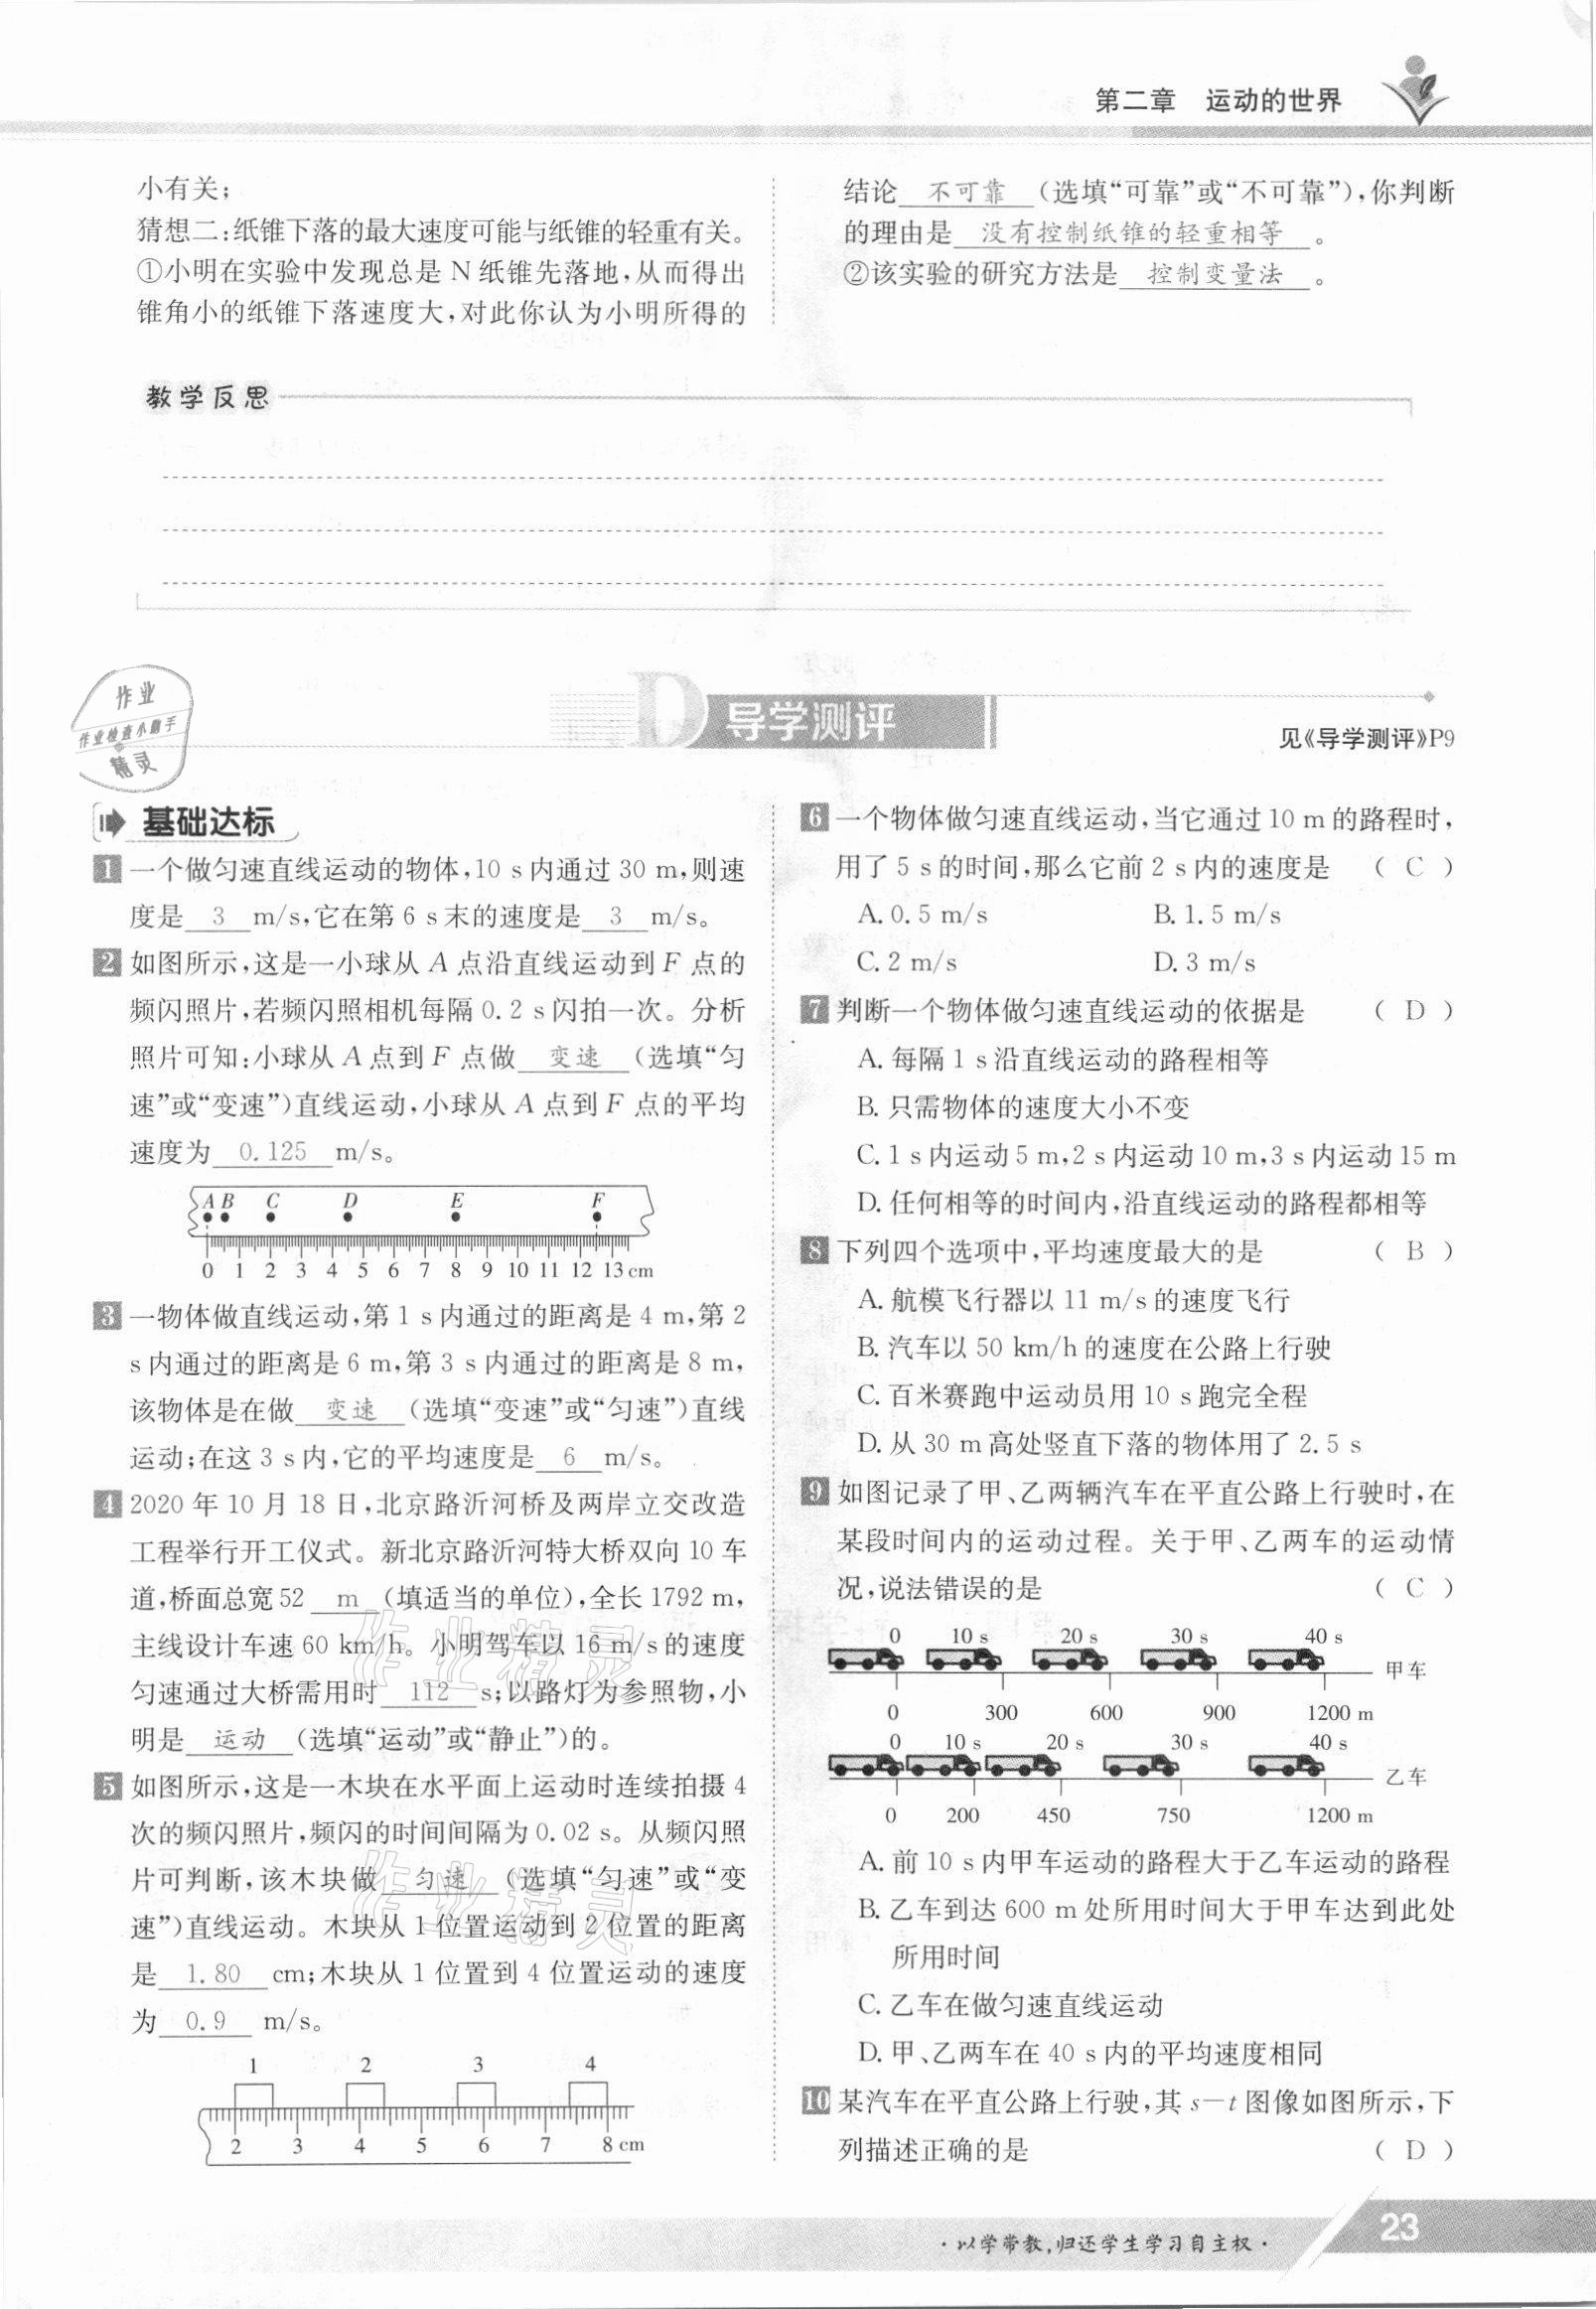 第二章 运动的世界
小有关;
猜想二:纸锥下落的最大速度可能与纸锥的轻重有关。
①小明在实验中发现总是 N 纸锥先落地,从而得出
锥角小的纸锥下落速度大,对此你认为小明所得的
结论 不可靠 (选填“可靠”或“不可靠”),你判断
的理由是 没有控制纸锥的轻重相等 。
②该实验的研究方法是 控制变量法 。
教学反思
D 导学测评
见《导学测评》P9
作业
作业检查小助手
精灵
基础达标
1 一个做匀速直线运动的物体,10 s 内通过 30 m,则速
度是 3 m/s,它在第 6 s 末的速度是 3 m/s。
2 如图所示,这是一小球从 A 点沿直线运动到 F 点的
频闪照片,若频闪照相机每隔 0.2 s 闪拍一次。分析
照片可知:小球从 A 点到 F 点做 变速 (选填“匀
速”或“变速”)直线运动,小球从 A 点到 F 点的平均
速度为 0.125 m/s。
A B C D E F
0 1 2 3 4 5 6 7 8 9 10 11 12 13 cm
3 一物体做直线运动,第 1 s 内通过的距离是 4 m,第 2
s 内通过的距离是 6 m,第 3 s 内通过的距离是 8 m,
该物体是在做 变速 (选填“变速”或“匀速”)直线
运动;在这 3 s 内,它的平均速度是 6 m/s。
4 2020 年 10 月 18 日,北京路沂河桥及两岸立交改造
工程举行开工仪式。新北京路沂河特大桥双向 10 车
道,桥面总宽 52 m (填适当的单位),全长 1792 m,
主线设计车速 60 km/h。小明驾车以 16 m/s 的速度
匀速通过大桥需用时 112 s;以路灯为参照物,小
明是 运动 (选填“运动”或“静止”)的。
5 如图所示,这是一木块在水平面上运动时连续拍摄 4
次的频闪照片,频闪的时间间隔为 0.02 s。从频闪照
片可判断,该木块做 匀速 (选填“匀速”或“变
速”)直线运动。木块从 1 位置运动到 2 位置的距离
是 1.80 cm;木块从 1 位置到 4 位置运动的速度
为 0.9 m/s。
1 2 3 4
2 3 4 5 6 7 8 cm
作业精灵
作业精灵
6 一个物体做匀速直线运动,当它通过 10 m 的路程时,
用了 5 s 的时间,那么它前 2 s 内的速度是 ( C )
A. 0.5 m/s B. 1.5 m/s
C. 2 m/s D. 3 m/s
7 判断一个物体做匀速直线运动的依据是 ( D )
A. 每隔 1 s 沿直线运动的路程相等
B. 只需物体的速度大小不变
C. 1 s 内运动 5 m,2 s 内运动 10 m,3 s 内运动 15 m
D. 任何相等的时间内,沿直线运动的路程都相等
8 下列四个选项中,平均速度最大的是 ( B )
A. 航模飞行器以 11 m/s 的速度飞行
B. 汽车以 50 km/h 的速度在公路上行驶
C. 百米赛跑中运动员用 10 s 跑完全程
D. 从 30 m 高处竖直下落的物体用了 2.5 s
9 如图记录了甲、乙两辆汽车在平直公路上行驶时,在
某段时间内的运动过程。关于甲、乙两车的运动情
况,说法错误的是 ( C )
0 10 s 20 s 30 s 40 s
甲车
0 300 600 900 1200 m
0 10 s 20 s 30 s 40 s
乙车
0 200 450 750 1200 m
A. 前 10 s 内甲车运动的路程大于乙车运动的路程
B. 乙车到达 600 m 处所用时间大于甲车达到此处
所用时间
C. 乙车在做匀速直线运动
D. 甲、乙两车在 40 s 内的平均速度相同
10 某汽车在平直公路上行驶,其 s-t 图像如图所示,下
列描述正确的是 ( D )
·以学带教,归还学生学习自主权·
23